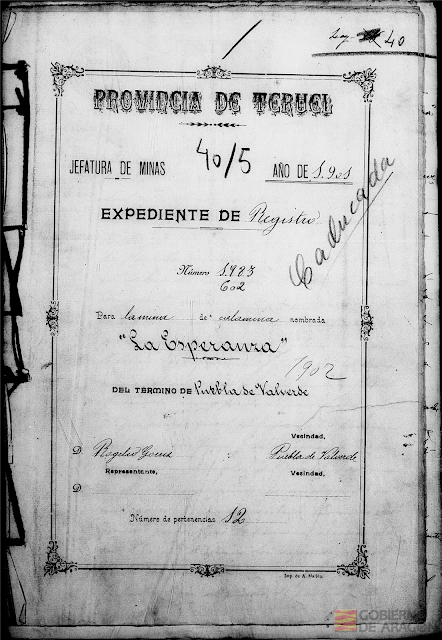 40
PROVINCIA DE TERUEL
JEFATURA DE MINAS 40/5 AÑO DE 1.901
Caducada
EXPEDIENTE DE Registro
Número 1.983
602
Para la mina de calamina nombrada
"La Esperanza"
1902
DEL TÉRMINO DE Puebla de Valverde
Vecindad,
D Rogelio Puebla de Valverde
Representante, Vecindad,
D
Número de pertenencias 12
Imp. de A. Mallén
GOBIERNO
DE ARAGON